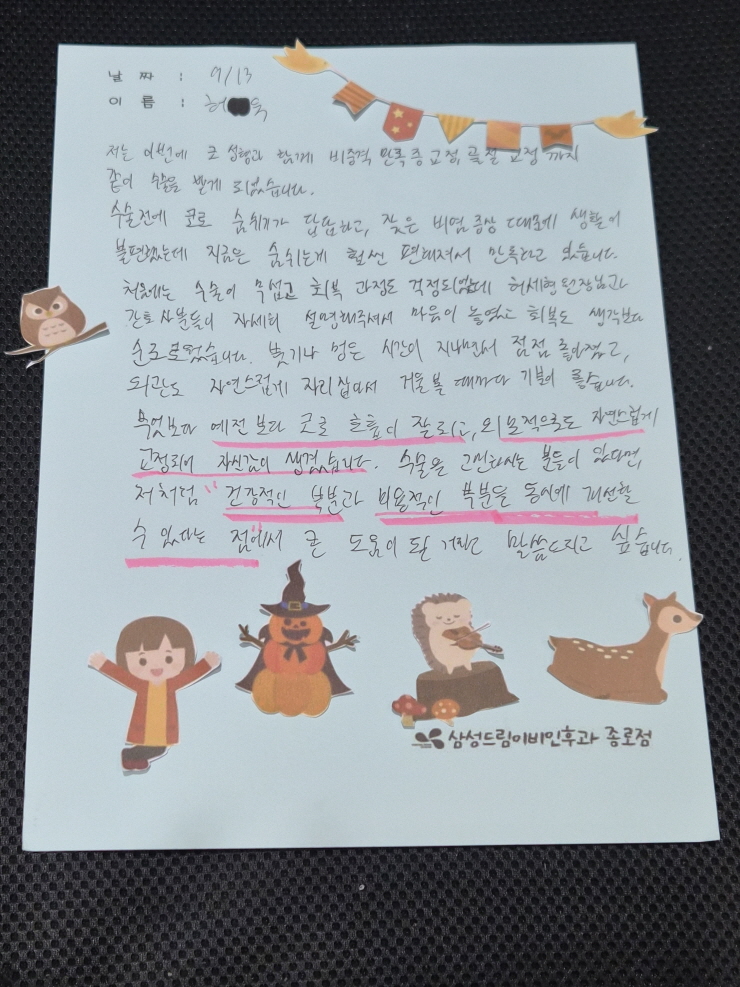 날 짜 : 9/13
이 름 : 허 욱
저는 이번에 코 성형과 함께 비중격 만곡증 교정, 골절 교정 까지
같이 수술을 받게 되었습니다.
수술전에 코로 숨쉬기가 답답하고, 잦은 비염증상 때문에 생활이
불편했는데 지금은 숨쉬는게 훨씬 편해져서 만족하고 있습니다.
처음에는 수술이 무섭고 회복 과정도 걱정되었는데 허세현 원장님과
간호사분들이 자세히 설명해주셔서 마음이 놓였고 회복도 생각보다
순조로웠습니다. 붓기나 멍은 시간이 지나면서 점점 좋아졌고,
외관도 자연스럽게 자리잡아서 거울볼 때마다 기분이 좋습니다.
무엇보다 예전보다 코로 호흡이 잘되고, 외모적으로도 자연스럽게
교정되어 자신감이 생겼습니다. 수술을 고민하시는 분들이 있다면,
저처럼 "건강적인 부분과 미용적인 부분을 동시에 개선할
수 있다는 점"에서 큰 도움이 된 거라고 말씀드리고 싶습니다.
삼성드림이비인후과 종로점